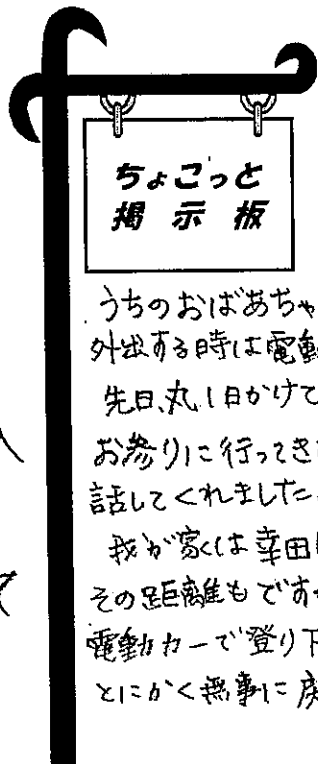 ちょこっと
掲示板
うちのおばあちゃ
外出する時は電動
先日、丸1日かけて
お参りに行ってき
話してくれました。
我が家は幸田
その距離もですが
電動カーで登り下
とにかく無事に